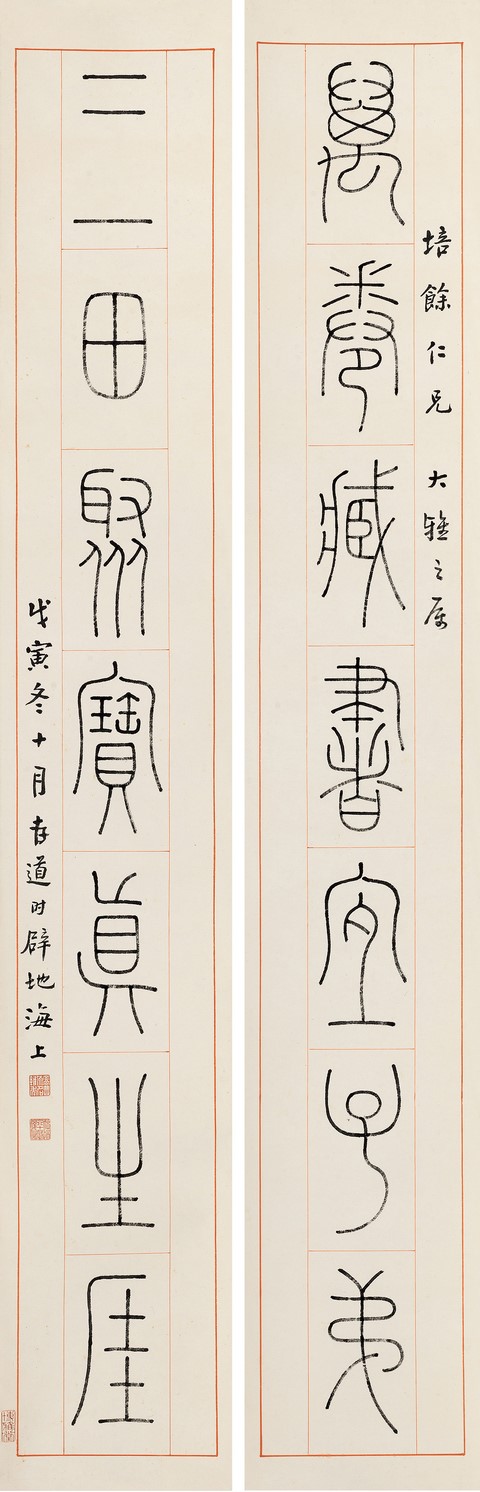 培餘仁兄 大雅之属
萬卷藏書宜子弟
三田聚寶真生涯
戊寅冬十月存道时辟地海上